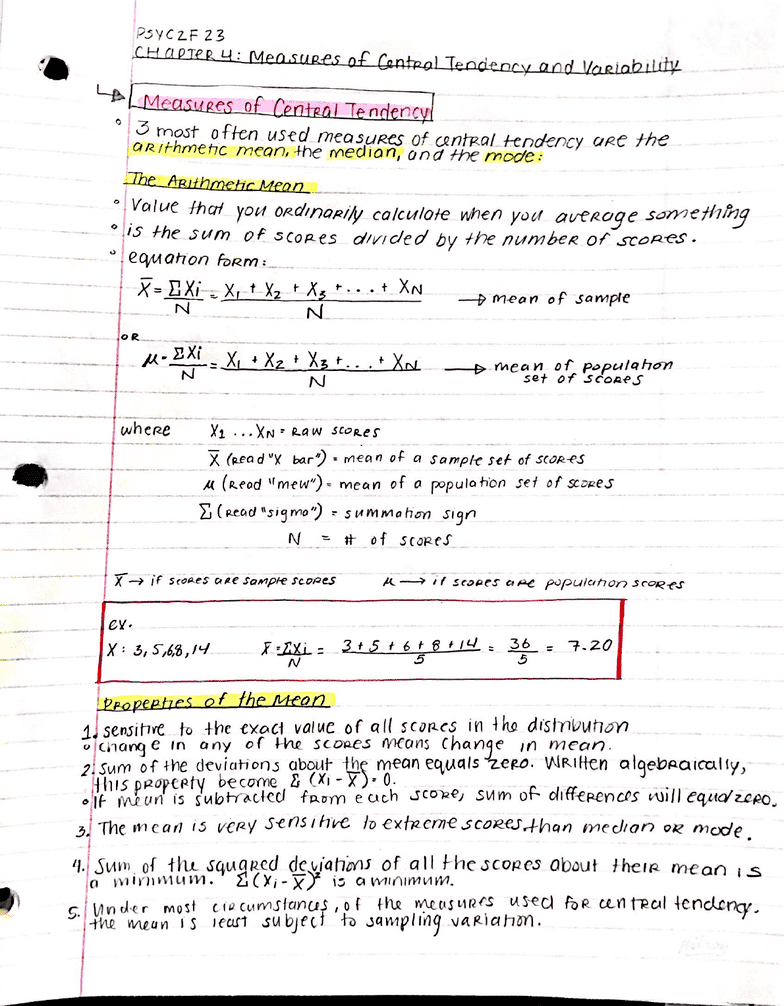 PSYC2F23
CHAPTER 4: Measures of Central Tendency and Variability
Measures of Central Tendency
° 3 most often used measures of central tendency are the
arithmetic mean, the median, and the mode:
The Arithmetic Mean
° Value that you ordinarily calculate when you average something
° is the sum of scores divided by the number of scores.
° equation form:
X̄ = ΣXi/N = X₁ + X₂ + X₃ + ... + XN/N → mean of sample
OR
μ = ΣXi/N = X₁ + X₂ + X₃ + ... + XN/N → mean of population
set of scores
where X₁ ... XN = raw scores
X̄ (Read "X bar") = mean of a sample set of scores
μ (Read "mew") = mean of a population set of scores
Σ (Read "sigma") = summation sign
N = # of scores
X̄ → if scores are sample scores μ → if scores are population scores
ex.
X: 3, 5, 6, 8, 14 X̄ = ΣXi/N = 3 + 5 + 6 + 8 + 14/5 = 36/5 = 7.20
Properties of the Mean
1. sensitive to the exact value of all scores in the distribution
° change in any of the scores means change in mean.
2. Sum of the deviations about the mean equals zero. Written algebraically,
this property become Σ (Xi - X̄) = 0.
° If mean is subtracted from each score, sum of differences will equal zero.
3. The mean is very sensitive to extreme scores, than median or mode.
4. Sum of the squared deviations of all the scores about their mean is
a minimum. Σ(Xi - X̄)² is a minimum.
5. Under most circumstances, of the measures used for central tendency.
the mean is least subject to sampling variation.